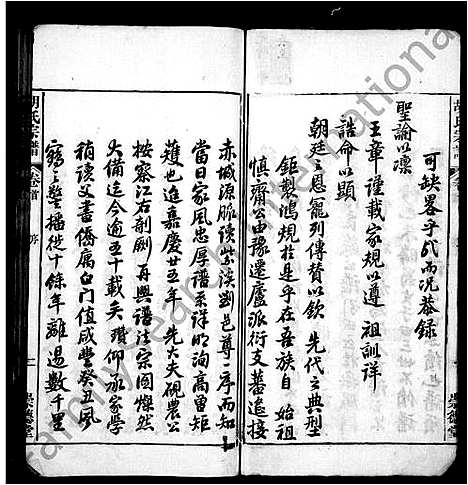 可缺畧乎哉而况恭録
聖諭以凛
王章謹載家規以遵 祖訓詳
誥命以顯
朝廷之恩寵列傳贊以欽 先代之典型
鉅製鴻規於是乎在吾族自 始祖
慎齋公由豫遷廬派衍支蕃遙接
赤城源脈读芸溪劉邑尊序而知
當日家風忠厚譜系詳明洵高曾矩
矱也迨嘉慶廿五年 先大夫硯農公
按察江右剞劂再興譜法宗圖燦然
大備迄今逾五十載矣 瓚仰承家學
稍读父書僑廬白門值咸豐癸丑風
鶴之警播徙十餘年離逷數千里
胡氏宗譜 卷首 序 二